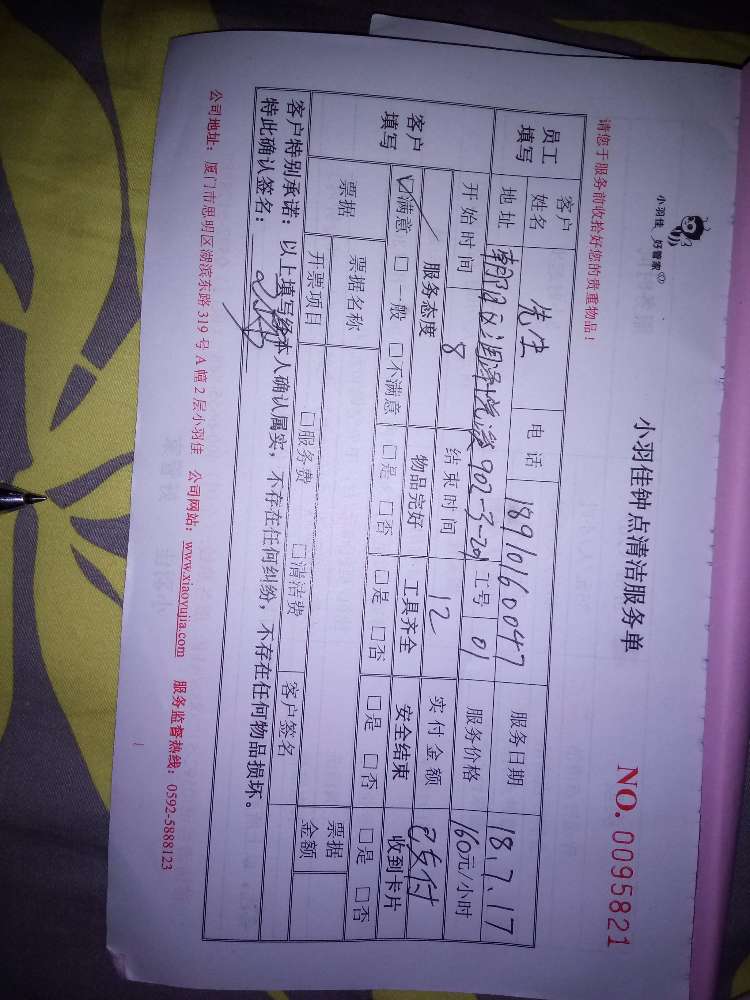 小羽佳 好管家
小羽佳钟点清洁服务单
NO. 0095821
请您于服务前收拾好您的贵重物品！
员工填写 客户姓名 先生 电话 18910160047 服务日期 18.7.17
地址 朝阳区润泽 902-3-201 工号 01 服务价格 160元/小时
开始时间 8 结束时间 12 实付金额 已支付
客户填写 服务态度 物品完好 工具齐全 安全结束 收到卡片
☑满意 □一般 □不满意 □是 □否 □是 □否 □是 □否 □是 □否
票据 票据名称 票据金额
开票项目 □服务费 □清洁费 客户签名
客户特别承诺：以上填写经本人确认属实，不存在任何纠纷，不存在任何物品损坏。
特此确认签名：
公司地址：厦门市思明区湖滨东路 319 号 A 幢 2 层小羽佳 公司网站：www.xiaoyujia.com 服务监督热线：0592-5888123